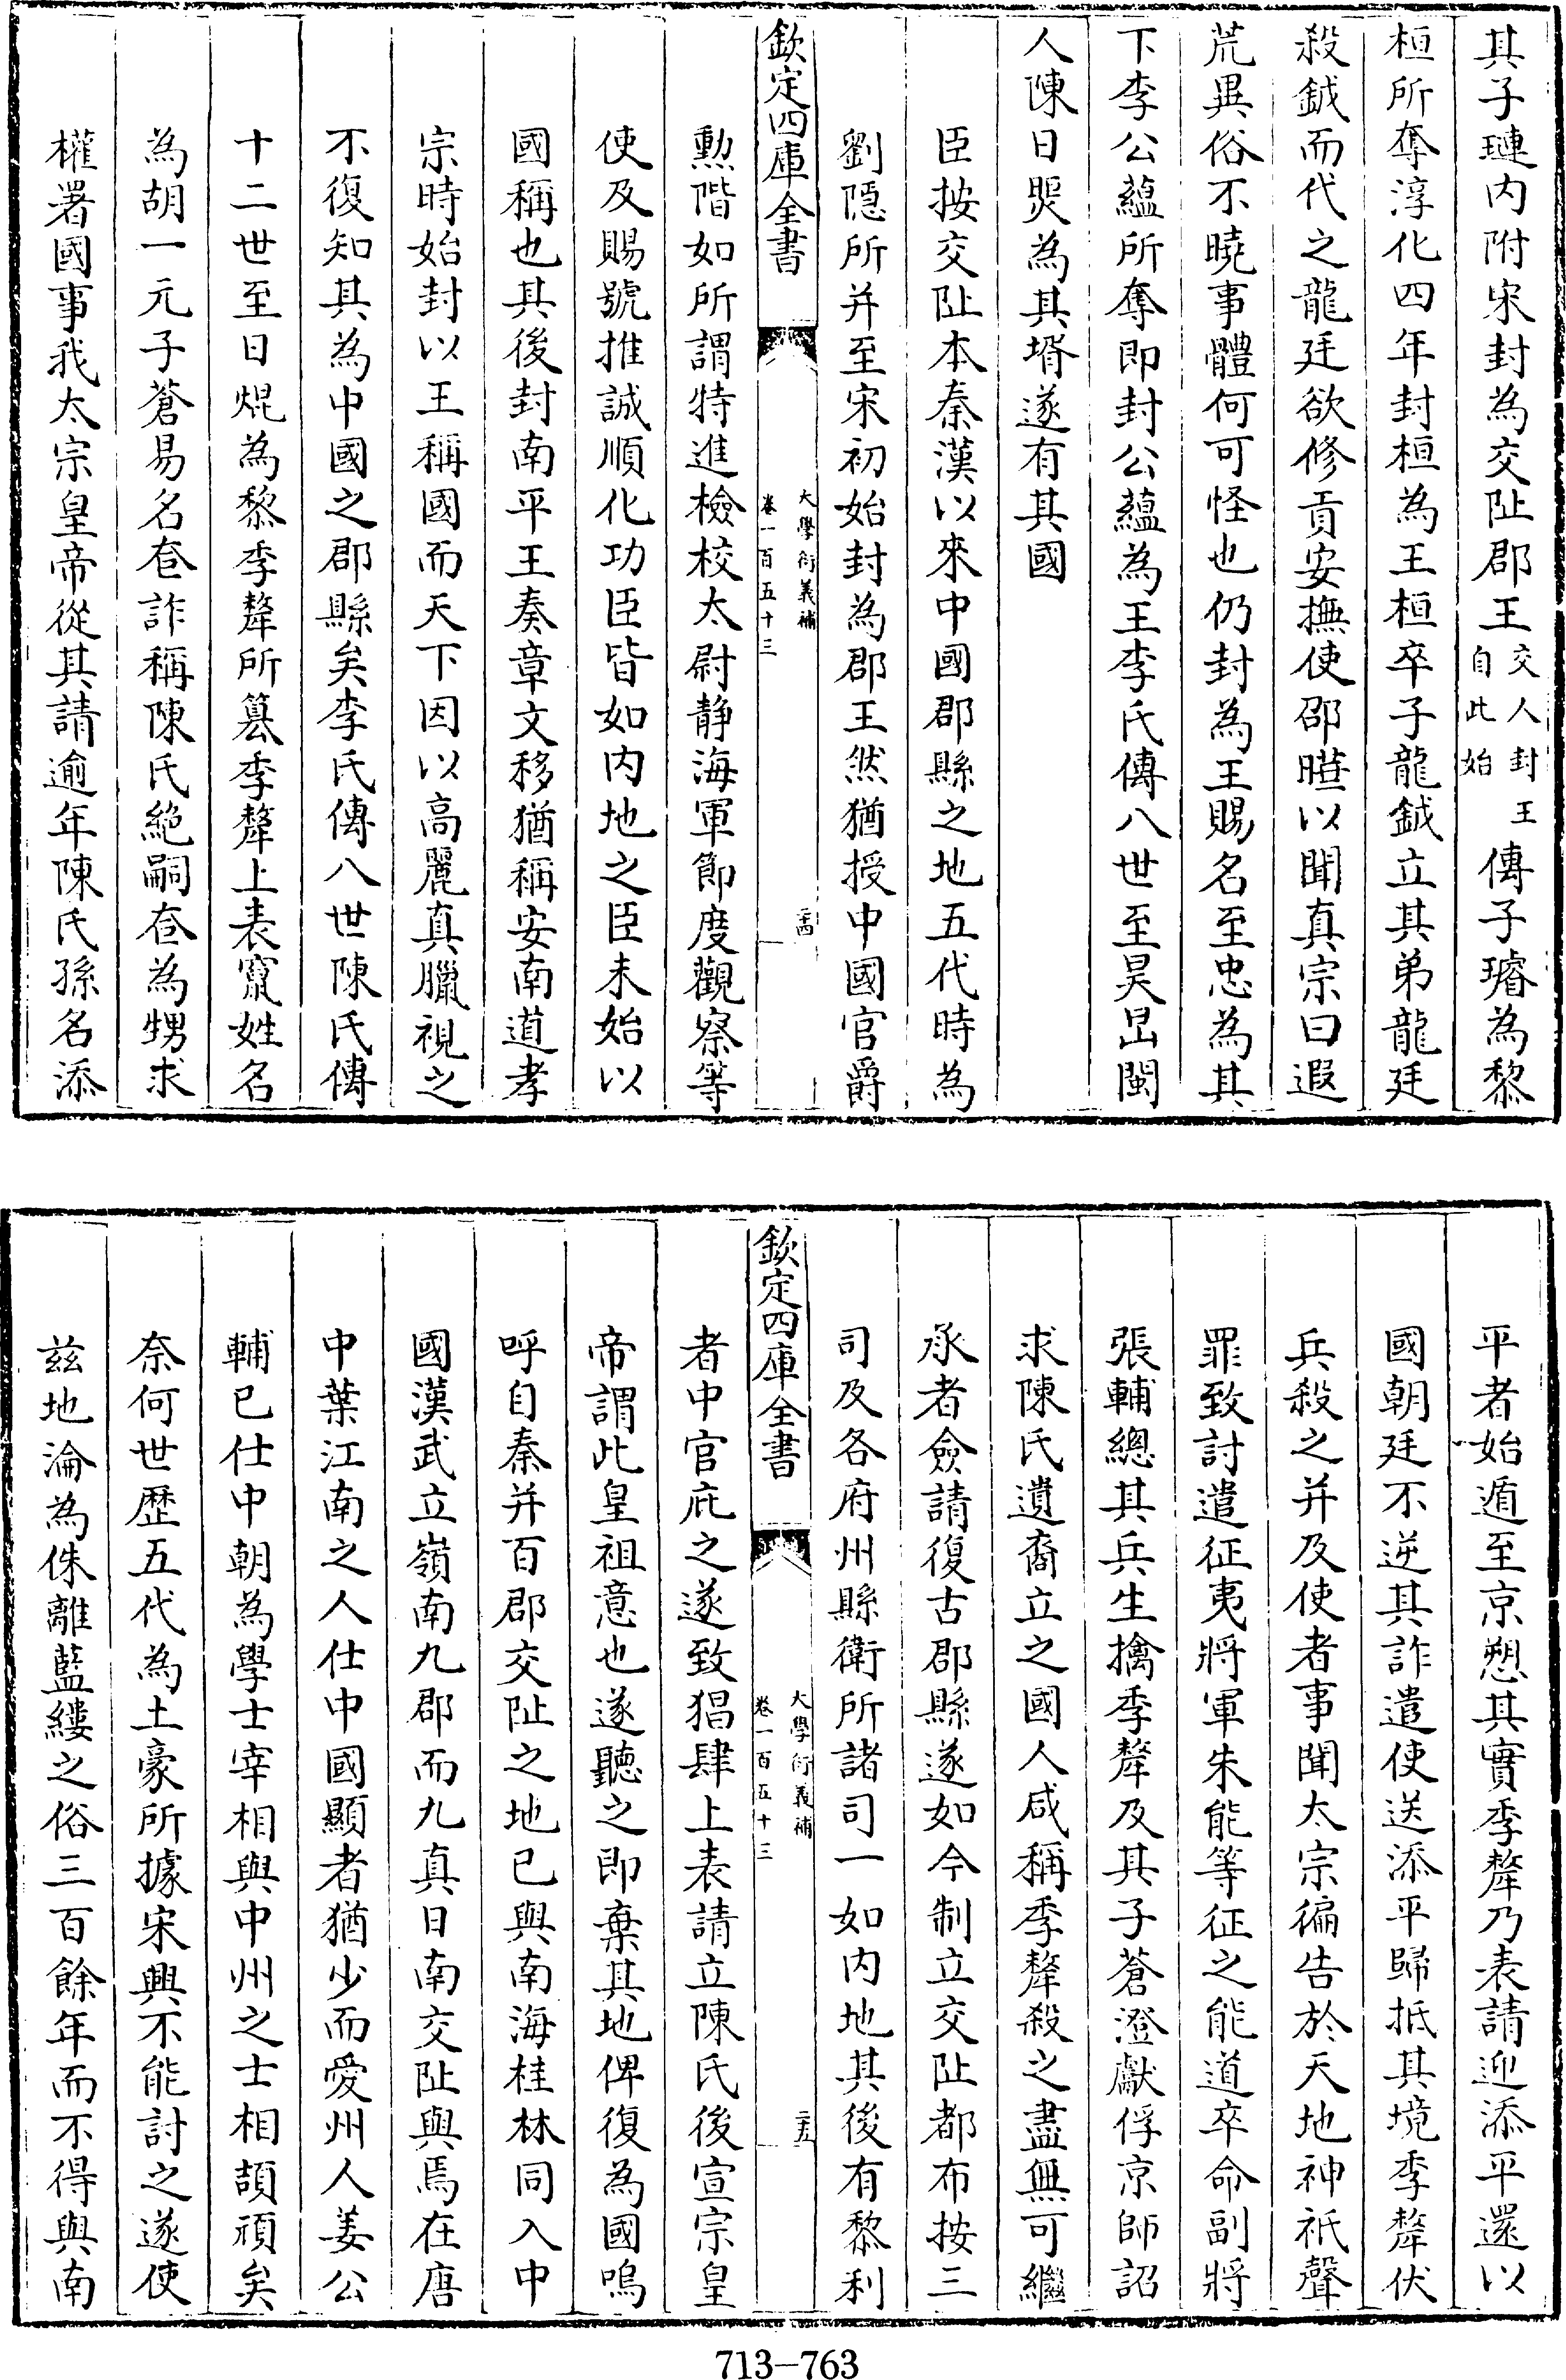 其子璉内附宋封為交阯郡王交人封王自此始傳子璿為黎
桓所奪淳化四年封桓為王桓卒子龍鉞立其弟龍廷
殺鉞而代之龍廷欲修貢安撫使邵曄以聞真宗曰遐
荒異俗不曉事體何可怪也仍封為王賜名至忠為其
下李公蘊所奪即封公蘊為王李氏傳八世至昊旵閩
人陳日煚為其壻遂有其國
臣按交阯本秦漢以來中國郡縣之地五代時為
劉隱所并至宋初始封為郡王然猶授中國官爵
欽定四庫全書
大學衍義補
卷一百五十三
二十四
勲階如所謂特進檢校太尉静海軍節度觀察等
使及賜號推誠順化功臣皆如内地之臣未始以
國稱也其後封南平王奏章文移猶稱安南道孝
宗時始封以王稱國而天下因以高麗真臘視之
不復知其為中國之郡縣矣李氏傳八世陳氏傳
十二世至日焜為黎季犛所簒季犛上表竄姓名
為胡一元子蒼易名夿詐稱陳氏絶嗣夿為甥求
權署國事我太宗皇帝從其請逾年陳氏孫名添
平者始遁至京愬其實季犛乃表請迎添平還以
國朝廷不逆其詐遣使送添平歸抵其境季犛伏
兵殺之并及使者事聞太宗徧告於天地神祇聲
罪致討遣征夷將軍朱能等征之能道卒命副將
張輔總其兵生擒季犛及其子蒼澄獻俘京師詔
求陳氏遺裔立之國人咸稱季犛殺之盡無可繼
承者僉請復古郡縣遂如今制立交阯都布按三
司及各府州縣衛所諸司一如内地其後有黎利
欽定四庫全書
大學衍義補
卷一百五十三
二十五
者中官庇之遂致猖肆上表請立陳氏後宣宗皇
帝謂此皇祖意也遂聽之即棄其地俾復為國嗚
呼自秦并百郡交阯之地已與南海桂林同入中
國漢武立嶺南九郡而九真日南交阯與焉在唐
中葉江南之人仕中國顯者猶少而愛州人姜公
輔已仕中朝為學士宰相與中州之士相頡頏矣
奈何世歴五代為土豪所據宋興不能討之遂使
兹地淪為侏離藍縷之俗三百餘年而不得與南
713-763